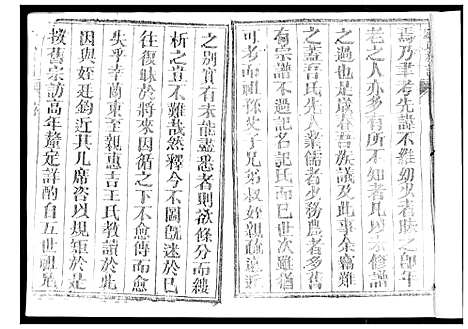 焉乃聿考先譜不維幼少者昧之即年
老之人亦多有所不知
之過也是歲春吾族議及此事余竊難
之蓋吾氏先人業儒者少務農者多舊
有宗譜不過記名記氏而已世次次
可考而不能詳父子兄弟叔姪遠近
之別實有未能盡悉者則欲條分而縷
析之豈不難哉然釋今不圖旣迷於已
往復昧於將來因循之下不愈傳而愈
失乎辛酉東王親惠吉王氏教讀於此
因與姪廷鈞近其几席咨以規矩於是
援舊宗訪高年釐定詳酌自五世祖